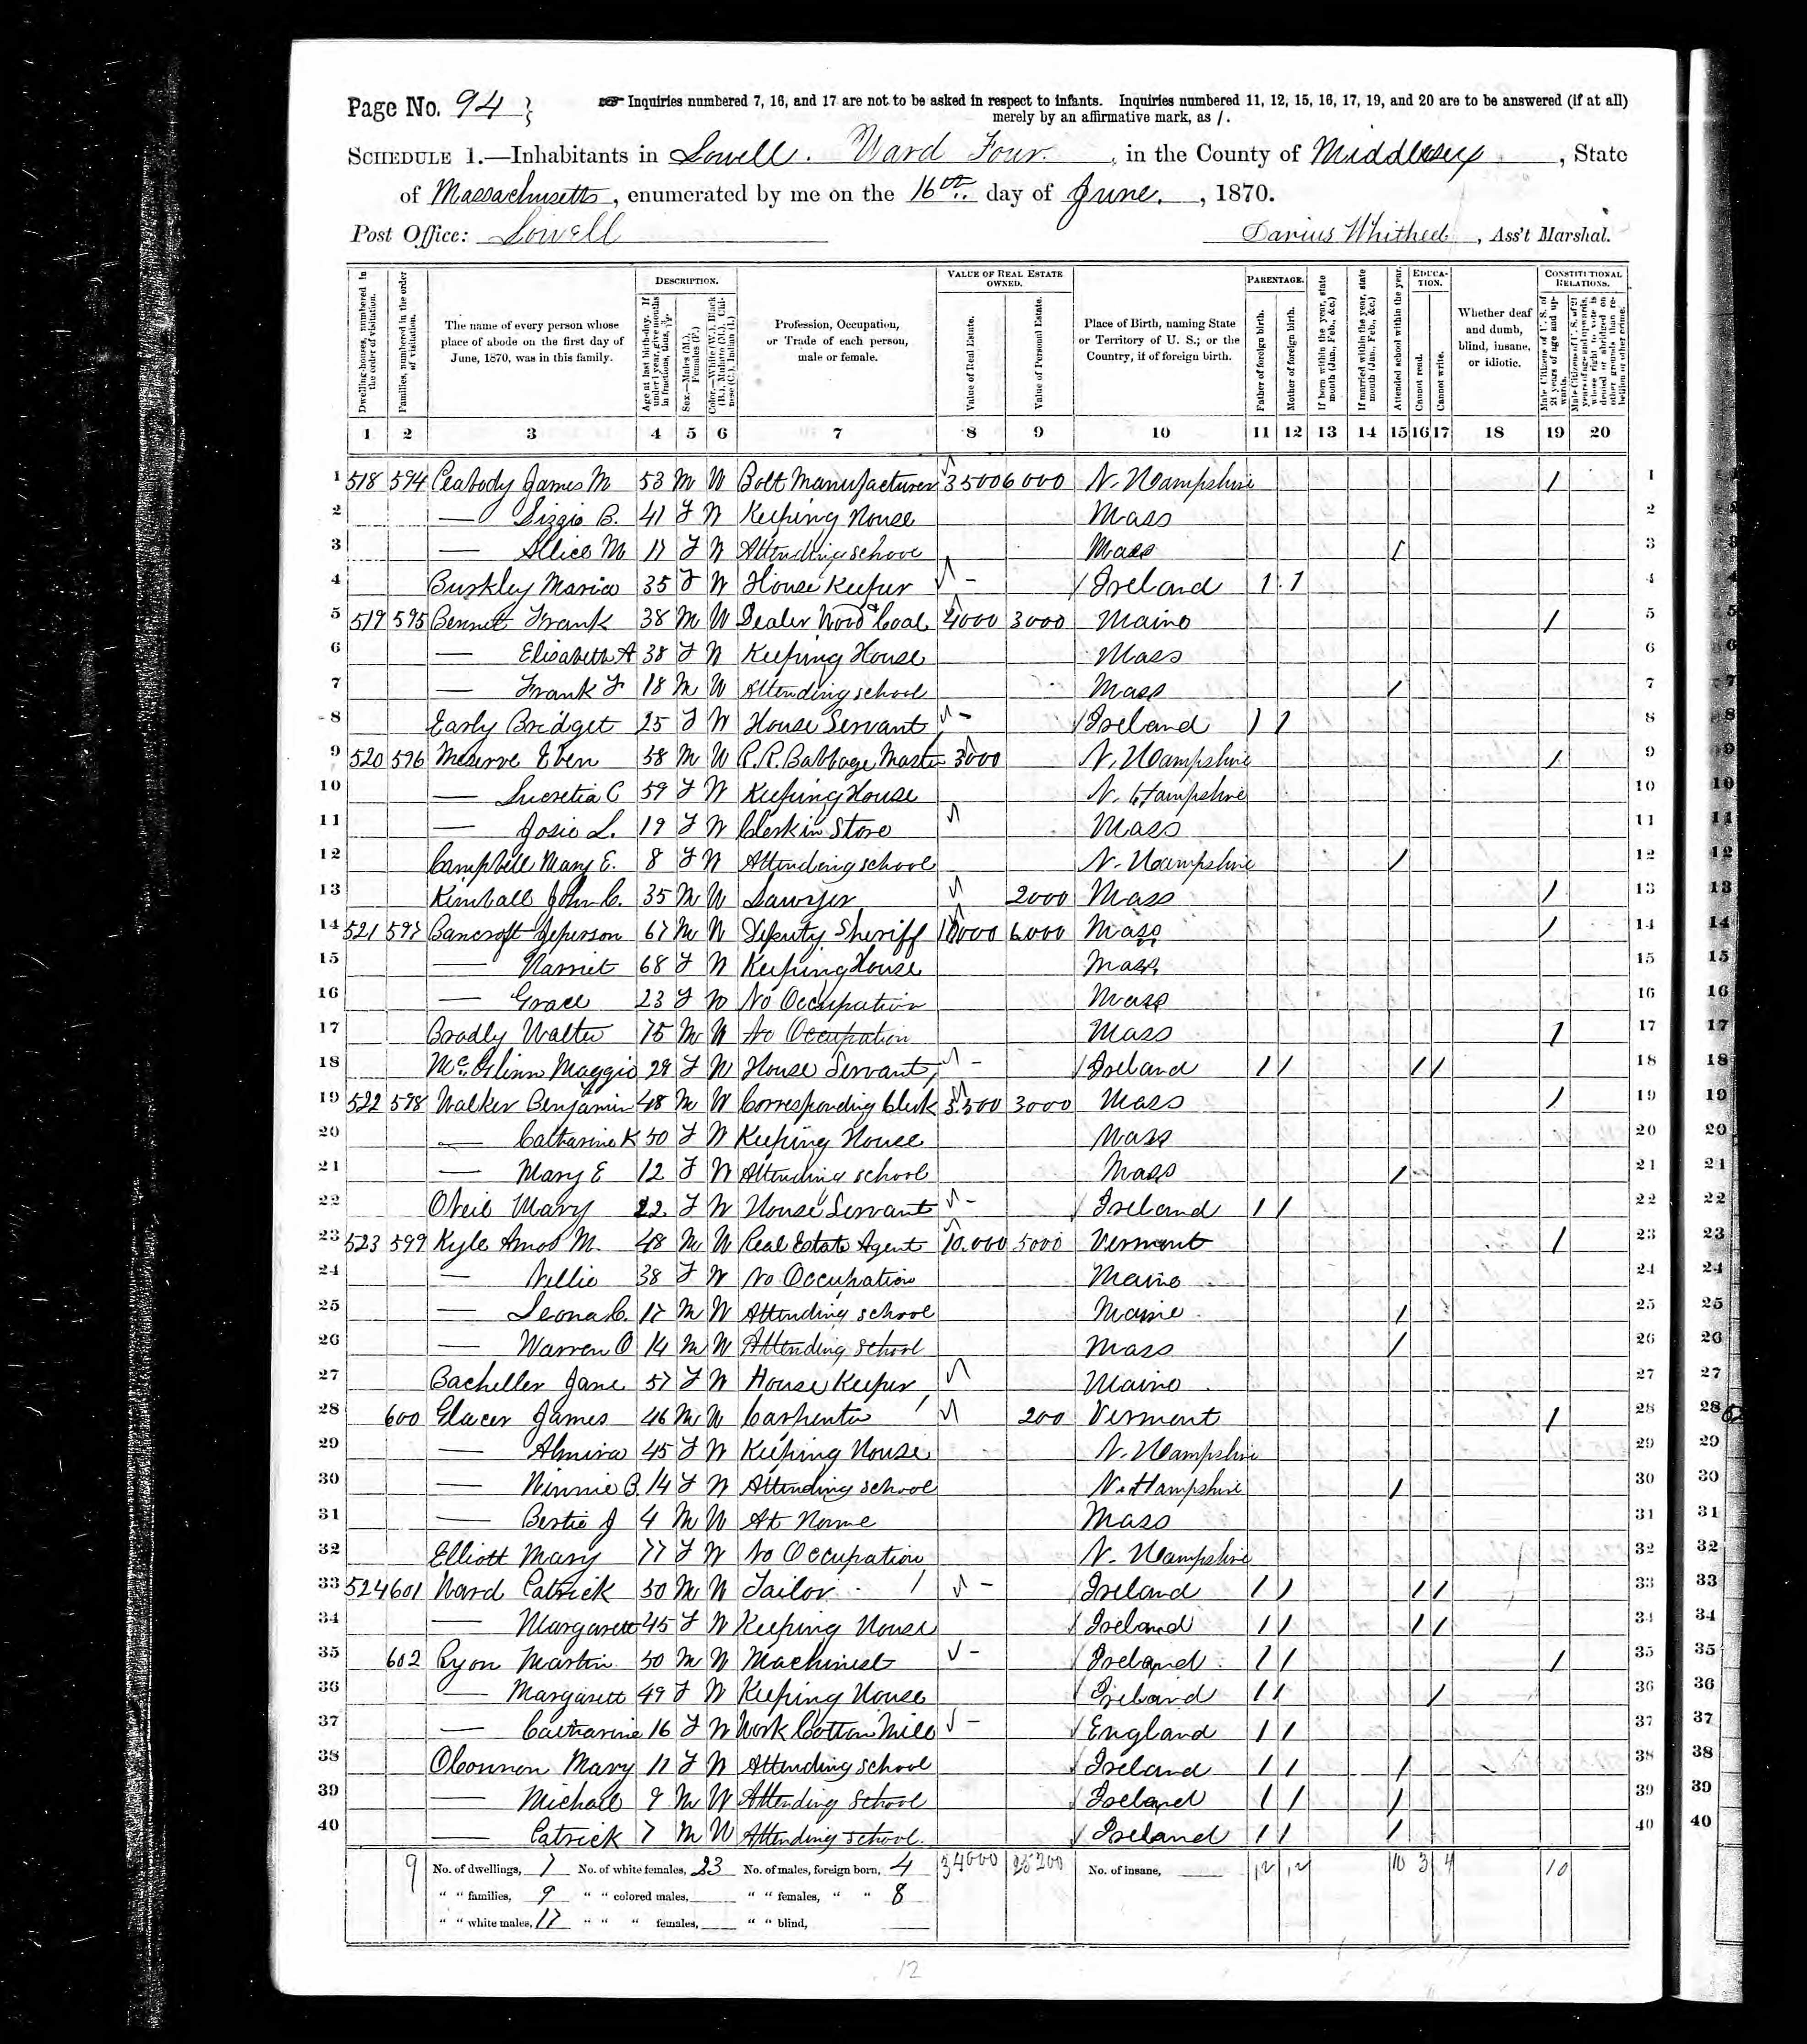 Page No. 94
Inquiries numbered 7, 16, and 17 are not to be asked in respect to infants. Inquiries numbered 11, 12, 15, 16, 17, 19, and 20 are to be answered (if at all)
merely by an affirmative mark, as /.
SCHEDULE 1.—Inhabitants in Lowell. Ward Four. , in the County of Middlesex , State
of Massachusetts, enumerated by me on the 16th. day of June. , 1870.
Post Office: Lowell Darius Whithed , Ass't Marshal.
DESCRIPTION. VALUE OF REAL ESTATE OWNED. PARENTAGE. EDUCATION. CONSTITUTIONAL RELATIONS.
Dwelling-houses, numbered in the order of visitation.
Families, numbered in the order of visitation.
The name of every person whose place of abode on the first day of June, 1870, was in this family.
Age at last birth-day. If under 1 year, give months in fractions, thus, 3/12
Sex.—Males (M.), Females (F.)
Color.—White (W.), Black (B.), Mulatto (M.), Chinese (C.), Indian (I.)
Profession, Occupation, or Trade of each person, male or female.
Value of Real Estate.
Value of Personal Estate.
Place of Birth, naming State or Territory of U. S.; or the Country, if of foreign birth.
Father of foreign birth.
Mother of foreign birth.
If born within the year, state month (Jan., Feb., &c.)
If married within the year, state month (Jan., Feb., &c.)
Attended school within the year.
Cannot read.
Cannot write.
Whether deaf and dumb, blind, insane, or idiotic.
Male Citizens of U. S. of 21 years of age and upwards.
Male Citizens of U. S. of 21 years of age and upwards, whose right to vote is denied or abridged on other grounds than rebellion or other crime.
1 2 3 4 5 6 7 8 9 10 11 12 13 14 15 16 17 18 19 20
1 518 594 Peabody James M 53 M W Bolt Manufacturer 3500 6000 N. Hampshire / 1
2 — Lizzie B. 41 F W Keeping House Mass 2
3 — Allice M 17 F W Attending school Mass / 3
4 Burkley Maria 35 F W House Keeper – / Ireland / / 4
5 519 595 Bennet Frank 38 M W Dealer Wood & Coal 4000 3000 Maine / 5
6 — Elisabeth A 38 F W Keeping House Mass 6
7 — Frank F 18 M W Attending school Mass / 7
8 Early Bridget 25 F W House Servant – / Ireland / / 8
9 520 596 Meserve Eben 58 M W R.R. Babbage Master 3000 N. Hampshire / 9
10 — Lucretia C 59 F W Keeping House N. Hampshire 10
11 — Josie L. 19 F W Clerk in Store Mass 11
12 Campbell Mary E. 8 F W Attending school N. Hampshire / 12
13 Kimball John C. 35 M W Lawyer 2000 Mass / 13
14 521 597 Bancroft Jeferson 67 M W Deputy Sheriff 6000 Mass / 14
15 — Harriet 68 F W Keeping House Mass 15
16 — Grace 23 F W No Occupation Mass 16
17 Bradly Walter 75 M W No Occupation Mass / 17
18 Mc.Glinn Maggie 28 F W House Servant – / Ireland / / / / 18
19 522 598 Walker Benjamin 48 M W Corresponding Clerk 5.500 3000 Mass / 19
20 — Catharine K 50 F W Keeping House Mass 20
21 — Mary E 12 F W Attending school Mass / 21
22 ONeil Mary 22 F W House Servant – / Ireland / / 22
23 523 599 Kyle Amos M. 48 M W Real Estate Agent 10.000 5000 Vermont / 23
24 — Nellie 38 F W No Occupation Maine 24
25 — Leona C. 17 M W Attending school Maine / 25
26 — Warren O 14 M W Attending School Mass / 26
27 Bacheller Jane 57 F W House Keeper Maine 27
28 600 Glacer James 46 M W Carpenter 200 Vermont / 28
29 — Almira 45 F W Keeping House N. Hampshire 29
30 — Winnie B. 14 F W Attending school N. Hampshire / 30
31 — Bertie J 4 M W At Home Mass 31
32 Elliott Mary 77 F W No Occupation N. Hampshire 32
33 524 601 Ward Patrick 50 M W Tailor – / Ireland / / / / 33
34 — Margarett 45 F W Keeping House / Ireland / / / / 34
35 602 Ryon Martin 50 M W Machinist – / Ireland / / / 35
36 — Margarett 49 F W Keeping House / Ireland / / / 36
37 — Catharine 16 F W Work Cotton Mill – / England / / 37
38 OConnon Mary 11 F W Attending school / Ireland / / / 38
39 — Michall 9 M W Attending School / Ireland / / / 39
40 — Patrick 7 M W Attending school. / Ireland / / / 40
9 No. of dwellings, 7 No. of white females, 23 No. of males, foreign born, 4 34000 25200 No. of insane, 12 12 10 3 4 10
" " families, 9 " " colored males, " " females, " " 8
" " white males, 17 " " " females, " " blind,
12